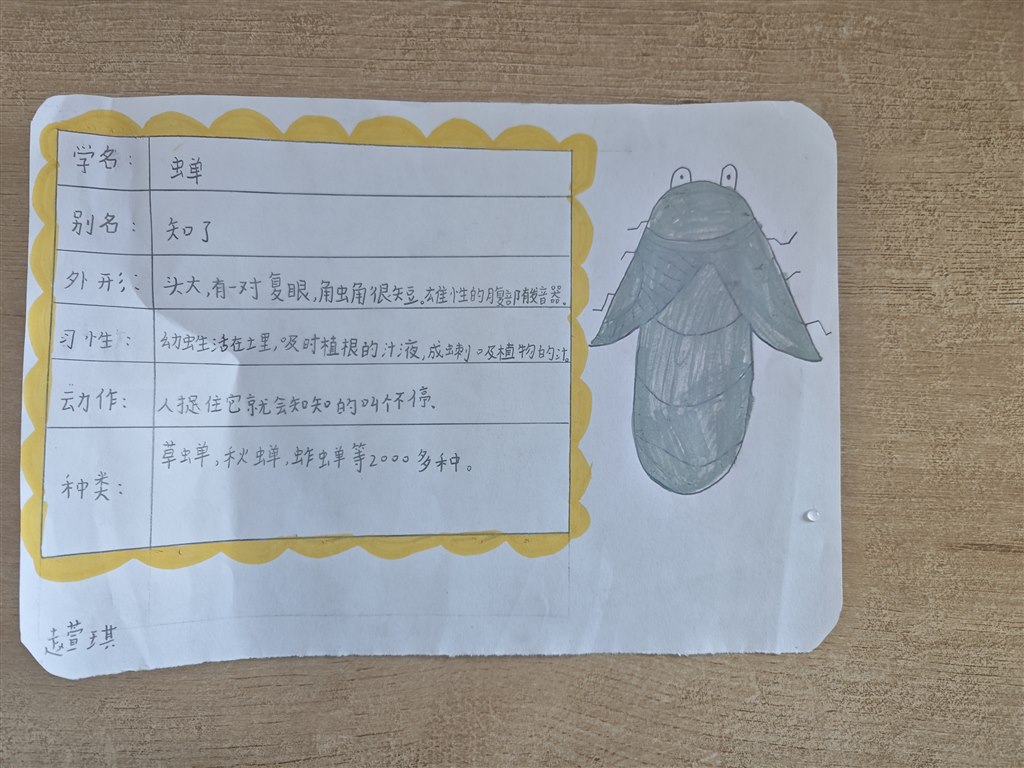 学名： 蝉
别名： 知了
外形： 头大，有一对复眼，角虫角很短。雄性的腹部有发音器。
习性： 幼虫生活在土里，吸吋植根的汁液，成蝲吸植物的汁
动作： 人捉住它就会知知的叫个不停。
种类： 草蝉，秋蝉，蚱蝉等2000多种。
赵萱琪